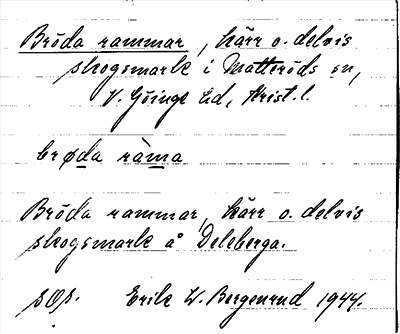 Bröda rammar, kärr o. delvis
skogsmark i Matteröds sn,
V. Göinge hd, Krist. l.
brøda ràma
Bröda rammar, kärr o. delvis
skogsmark å Deleberga.
SOS. Erik W. Bergenrud 1944.